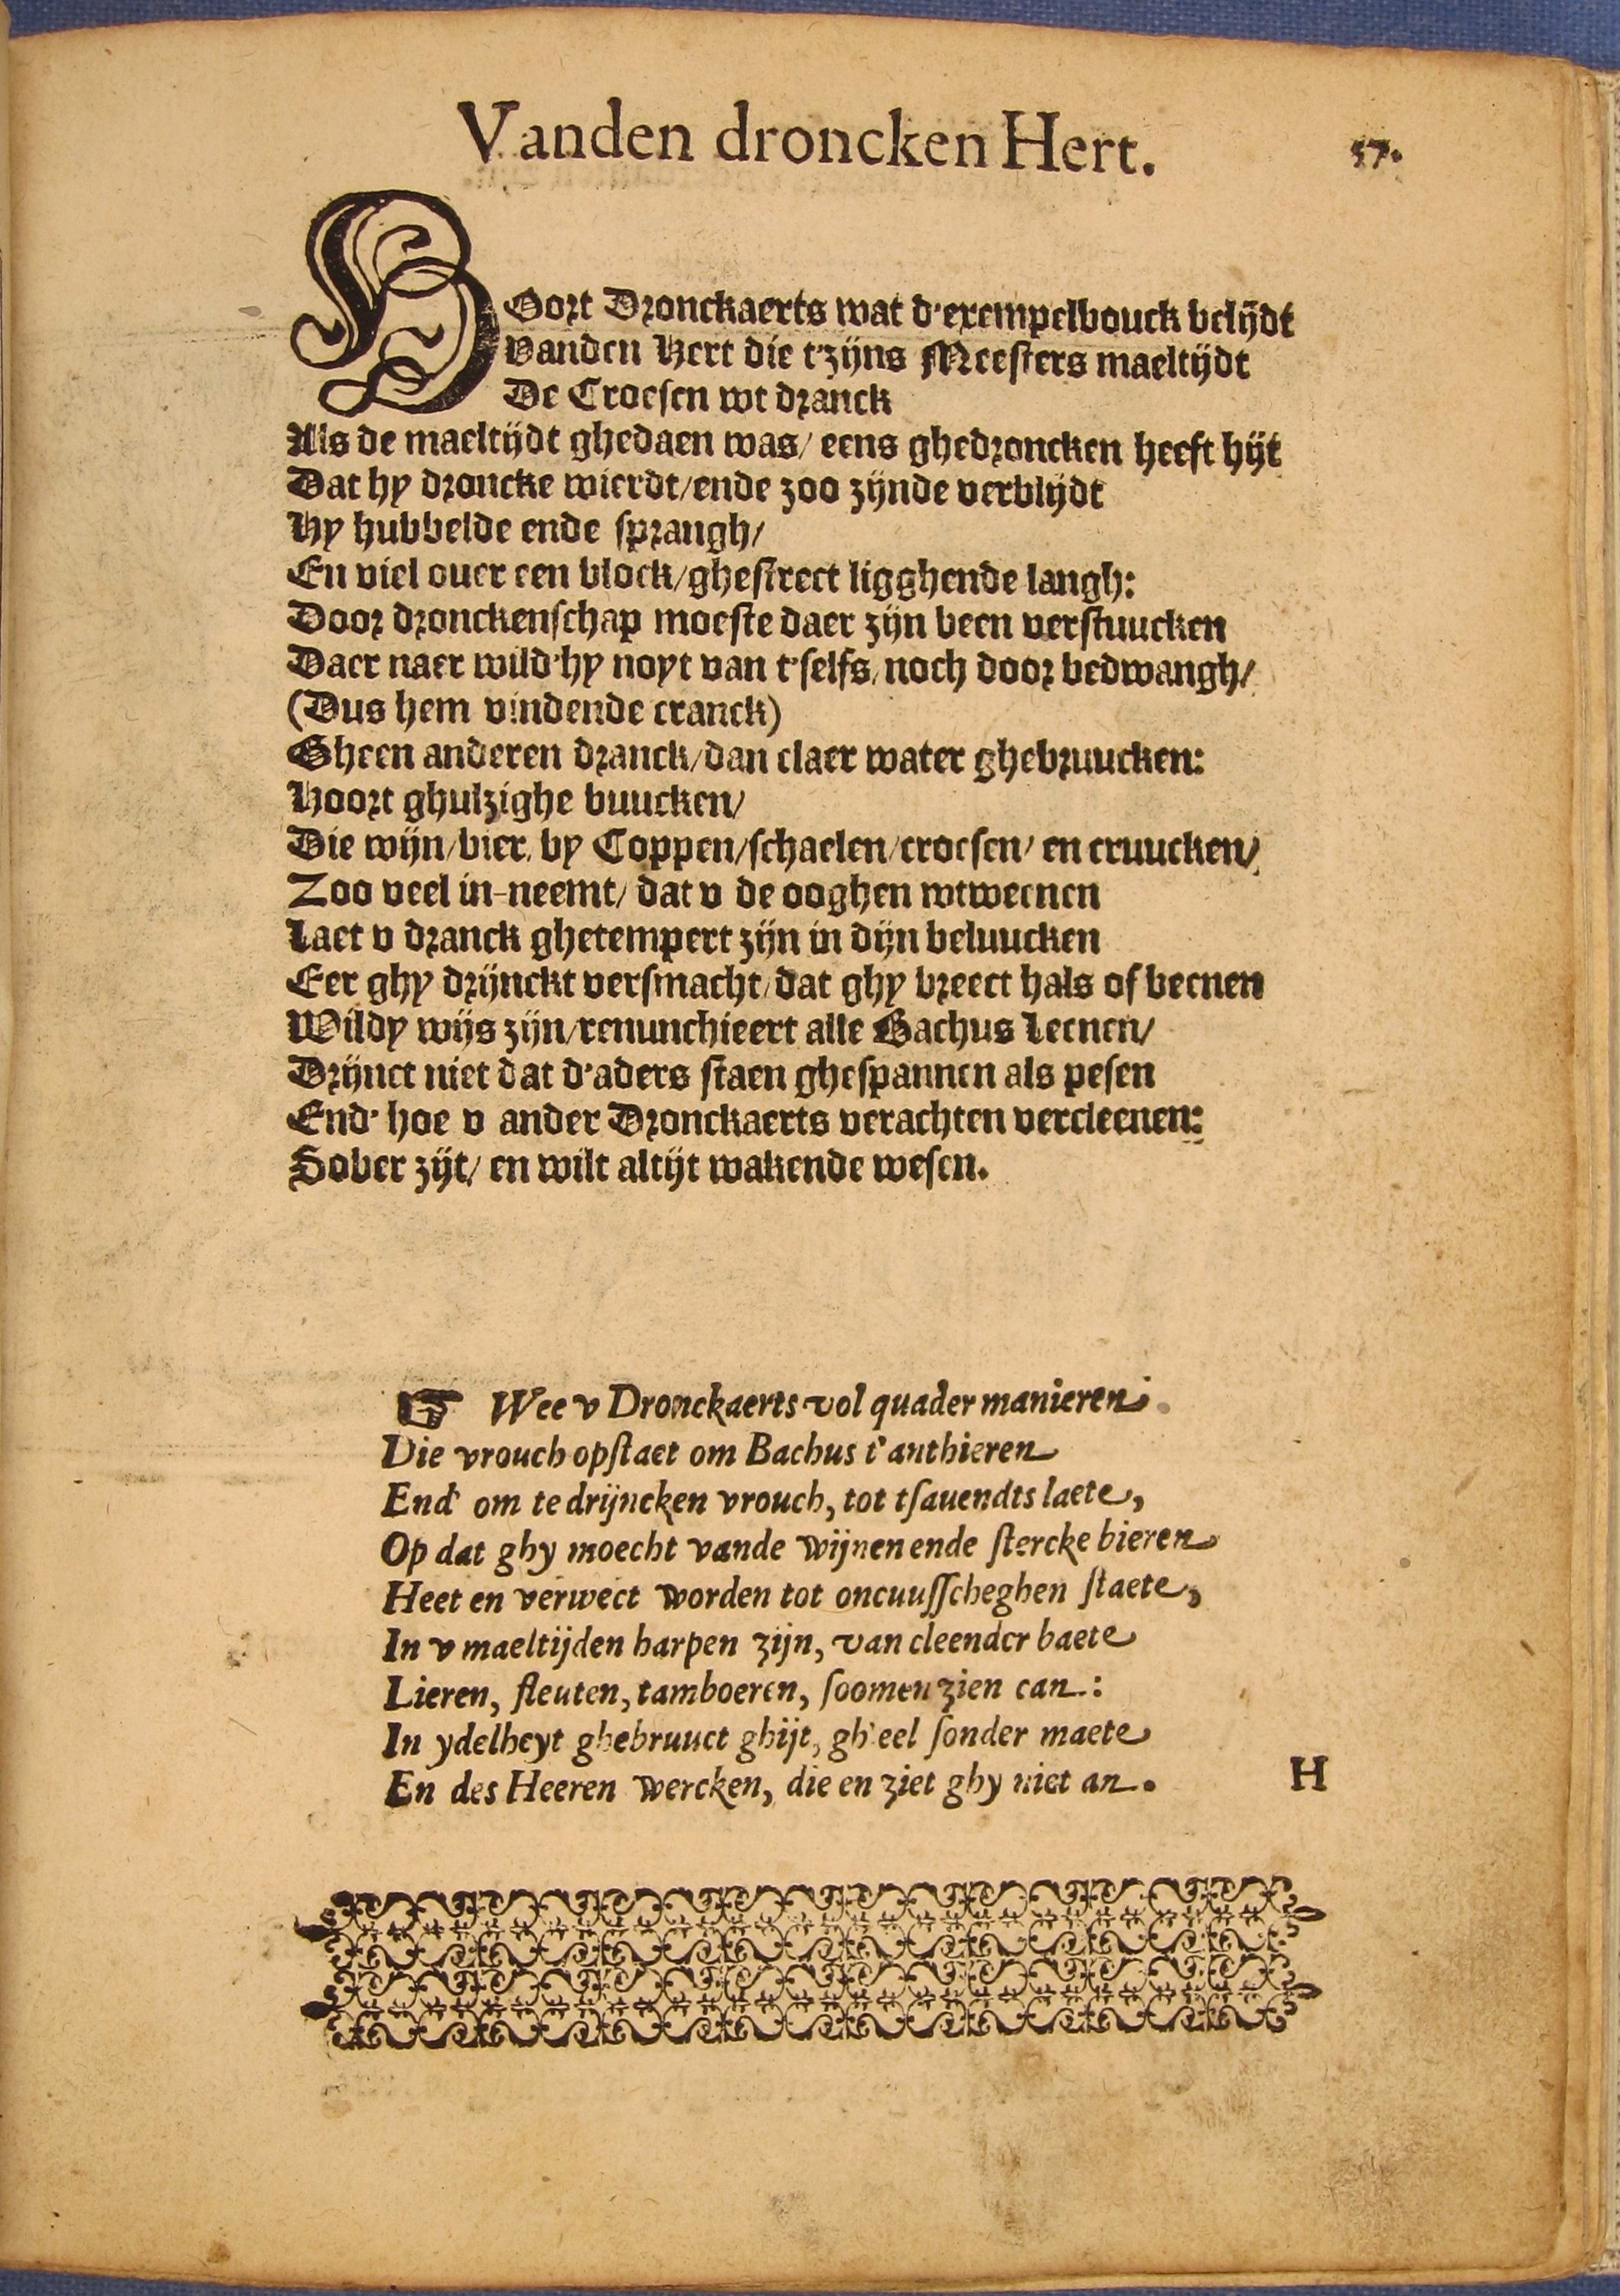 Vanden droncken Hert.
57.
HOort Dronckaerts wat d'exempelbouck belijdt
Vanden Hert die t'zijns Meesters maeltijdt
De Croesen wt dranck
Als de maeltijdt ghedaen was/ eens ghedroncken heeft hijt
Dat hy droncke wierdt/ende zoo zijnde verblijdt
Hy hubbelde ende sprangh/
En viel ouer een block/ghestrect ligghende langh:
Door dronckenschap moeste daer zijn been verstuucken
Daer naer wild'hy noyt van t'selfs/noch door bedwangh/
(Dus hem vindende cranck)
Gheen anderen dranck/dan claer water ghebruucken:
Hoort ghulzighe buucken/
Die wijn/bier/ by Coppen/schaelen/croesen/ en cruucken/
Zoo veel in-neemt/ dat v de ooghen wtweenen
Laet v dranck ghetempert zijn in dijn beluucken
Eer ghy drijnckt versmacht/dat ghy breect hals of beenen
Wildy wijs zijn/renunchieert alle Bachus Leenen/
Drijnct niet dat d'aders staen ghespannen als pesen
End' hoe v ander Dronckaerts verachten vercleenen:
Sober zijt/ en wilt altijt wakende wesen.
☞ Wee v Dronckaerts vol quader manieren
Die vrouch opstaet om Bachus t'anthieren
End' om te drijncken vrouch, tot tsauendts laete,
Op dat ghy moecht vande wijnen ende stercke bieren
Heet en verwect worden tot oncuusscheghen staete,
In v maeltijden harpen zijn, van cleender baete
Lieren, fleuten, tamboeren, soomen zien can:
In ydelheyt ghebruuct ghijt, gh'eel sonder maete
En des Heeren wercken, die en ziet ghy niet an.
H